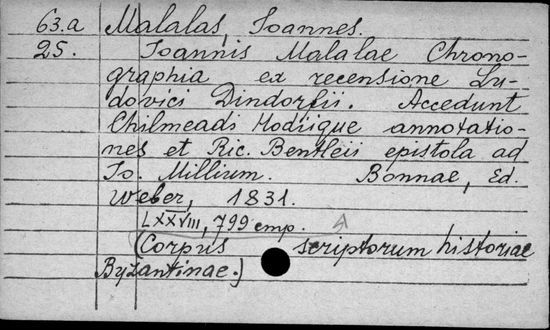 63.a Malalas, Ioannes.
25. Ioannis Malalae Chrono-
graphia ex recensione Lu-
dovici Dindorfii. Accedunt
Chilmeadi Hodiique annotatio-
nes et Ric. Bentleii epistola ad
Io. Millium. Bonnae, Ed.
Weber, 1831.
LXXVIII, 799 стр.
(Corpus scriptorum historiae
Byzantinae.)